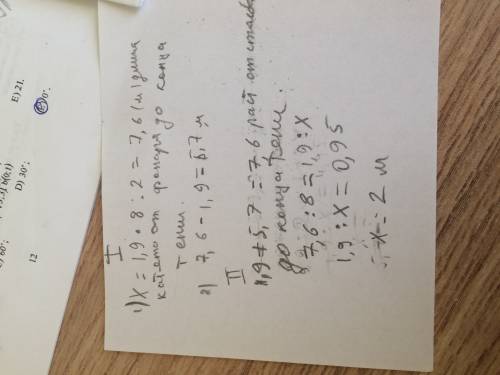 I
1) X = 1,9 • 8 : 2 = 7,6 (м) длина
катета от фонаря до конца
тени.
2) 7,6 - 1,9 = 5,7 м
II
1,9 + 5,7 = 7,6 раст от столба
до конца тени.
7,6 : 8 = 1,9 : X
1,9 : X = 0,95
X = 2 м
E) 21.
C) 0°;
D) 30°;
) 60°;
12